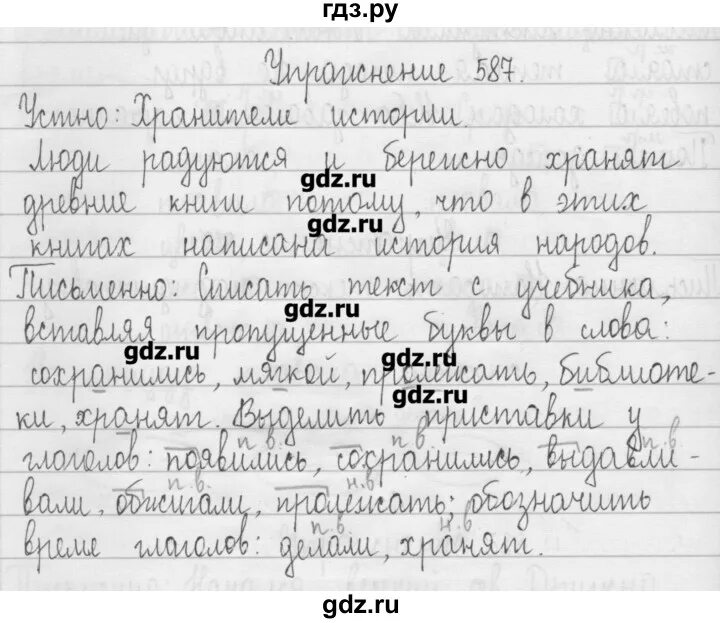 гдз.ру
Упражнение 587.
Устно: Хранители истории.
Люди радуются и бережно хранят
gdz.ru
древние книги потому, что в этих
книгах написана история народов.
gdz.ru
Письменно: Списать текст с учебника,
gdz.ru
вставляя пропущенные буквы в слова:
gdz.ru
gdz.ru
сохранились, мягкой, пролежать, библиоте-
gdz.ru
ки, хранят. Выделить приставки у
п.в. п.в. п.в.
глоголов: появились, сохранились, выдавли-
п.в. н.в.
вали, обжигали, пролежать; обозначить
п.в. н.в.
време глаголов: делали, хранят.
gdz.ru